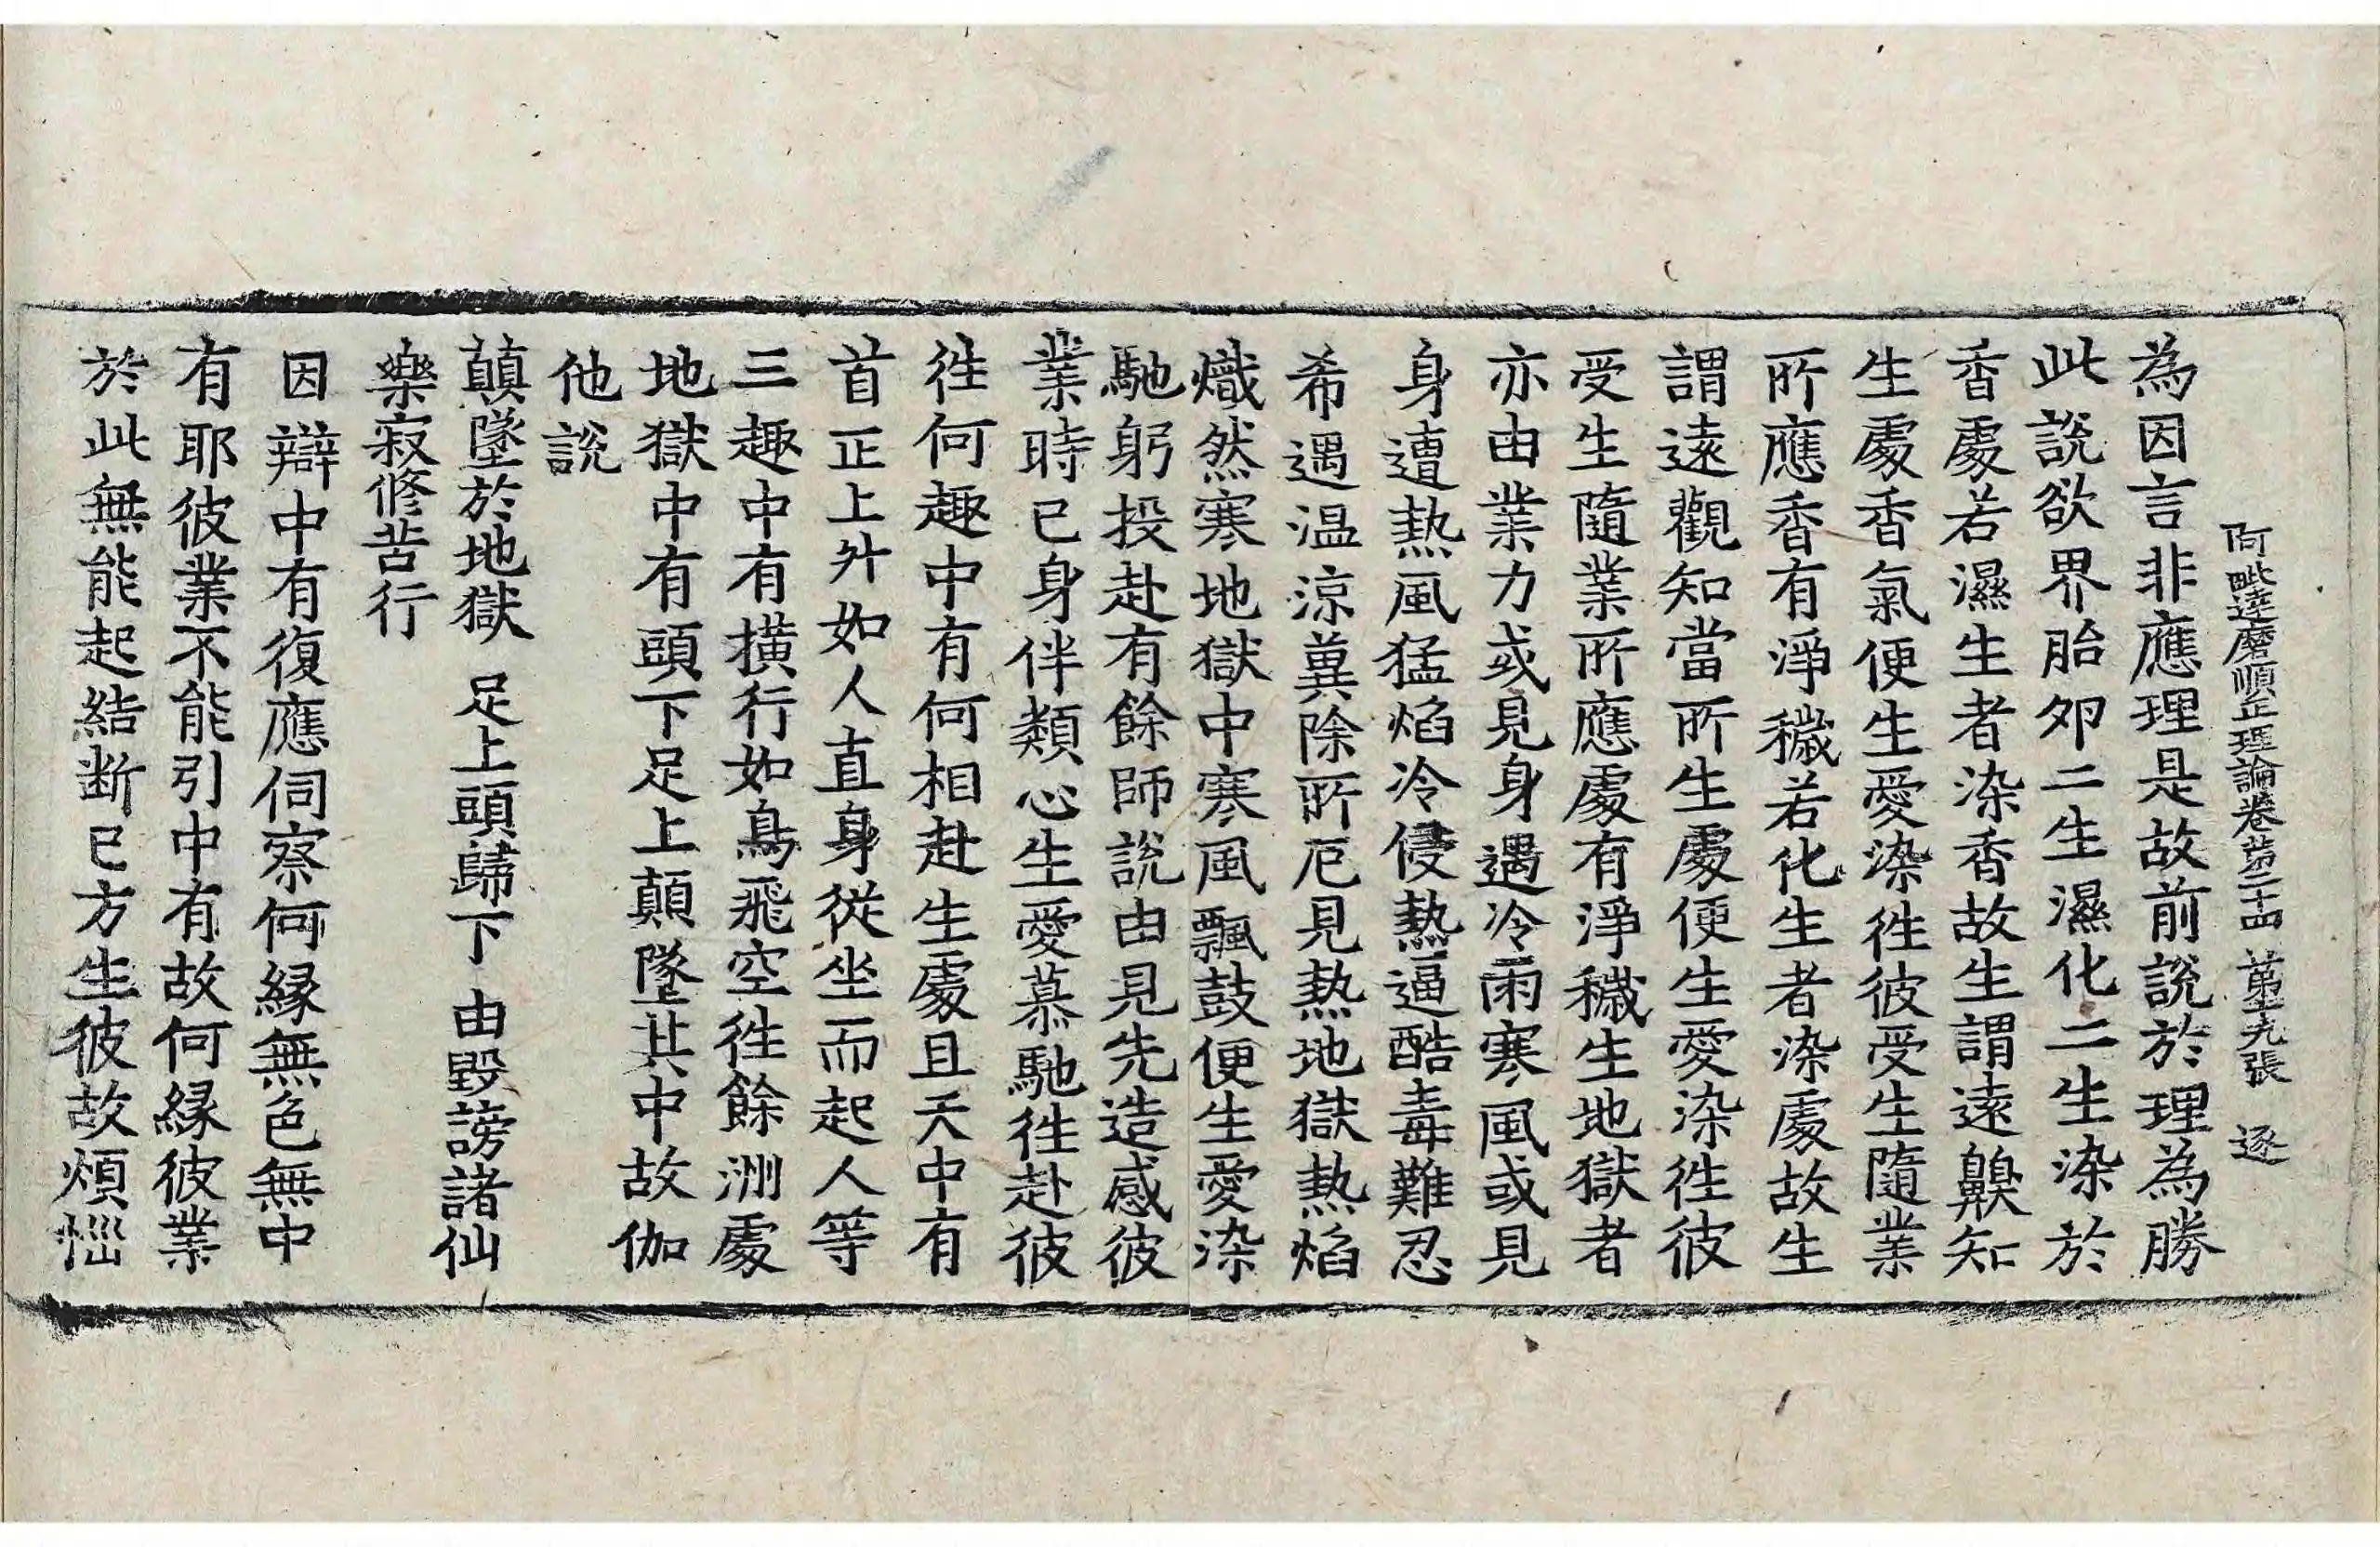 阿毗達磨順正理論卷第二十四 第十九張 逐
為因言非應理是故前說於理為勝
此說欲界胎卵二生濕化二生染於
香處若濕生者染香故生謂遠齅知
生處香氣便生愛染徃彼受生隨業
所應香有淨穢若化生者染處故生
謂遠觀知當所生處便生愛染徃彼
受生隨業所應處有淨穢生地獄者
亦由業力或見身遇冷雨寒風或見
身遭熱風猛焰冷侵熱逼酷毒難忍
希遇温涼兾除所厄見熱地獄熱焰
熾然寒地獄中寒風飄鼓便生愛染
馳躬投赴有餘師說由見先造感彼
業時已身伴類心生愛慕馳徃赴彼
徃何趣中有何相赴生處且天中有
首正上升如人直身從坐而起人等
三趣中有橫行如鳥飛空徃餘洲處
地獄中有頭下足上顛墜其中故伽
他說
顛墜於地獄 足上頭歸下 由毀謗諸仙
樂寂修苦行
因辯中有復應伺察何緣無色無中
有耶彼業不能引中有故何緣彼業
於此無能起結断已方生彼故煩惱